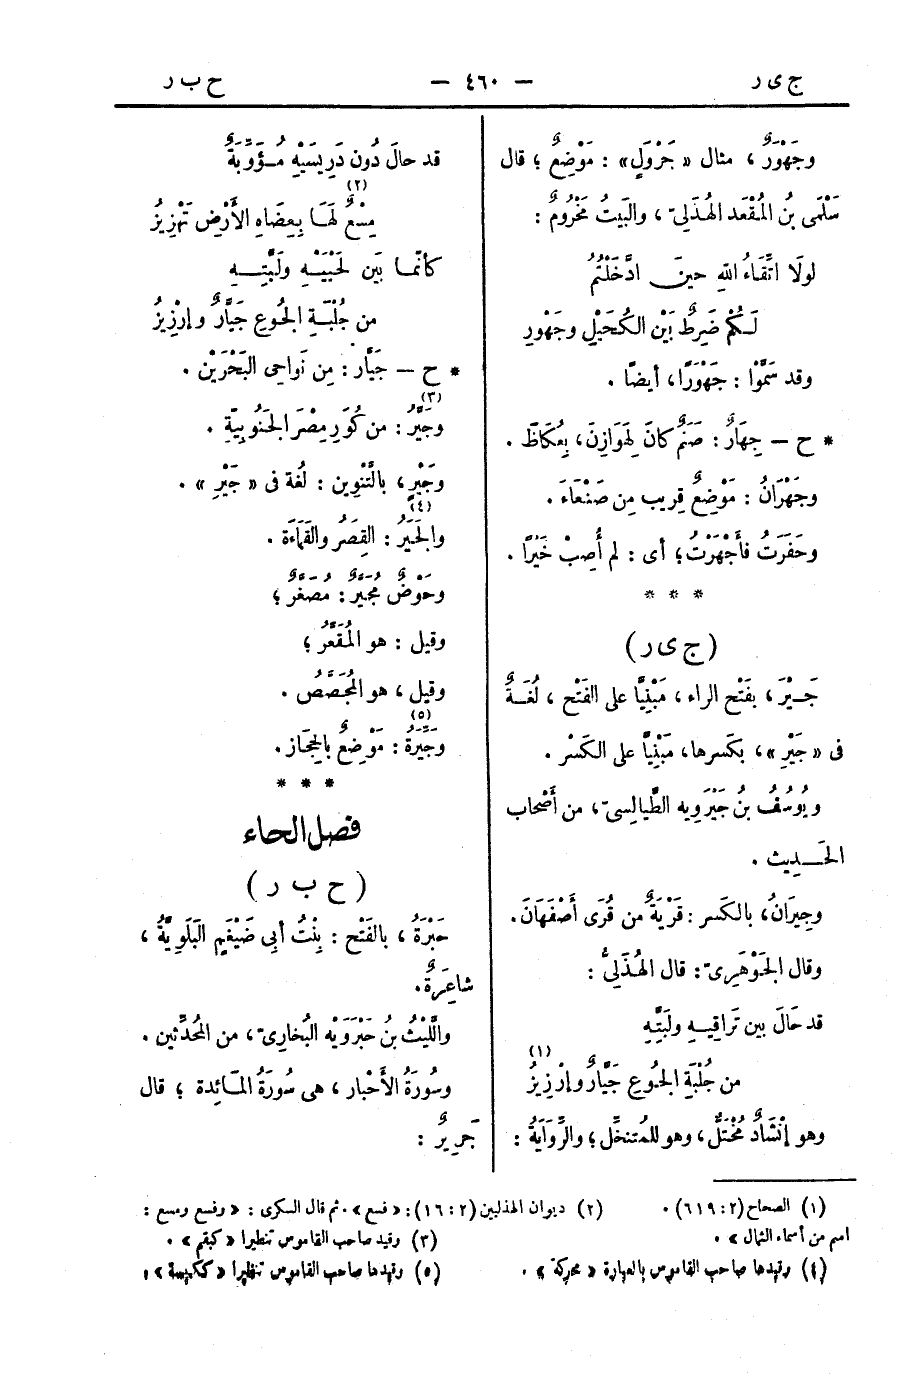 ج ى ر — ٤٦٠ — ح ب ر
وجَهْوَرٌ ، مثال « جَرْوَلٍ » : مَوْضِعٌ ؛ قال
سَلْمَى بنُ المُقْعَد الهُذَلِىّ ، والبَيتُ مَخْرُومٌ :
لولَا اتِّقَاءُ اللهِ حينَ ادَّخَلْتُمُ
لَكُمْ ضَرِطٌ بَيْن الكُحَيْلِ وجَهْورِ
وقد سَمَّوْا : جَهْوَرًا ، أيضًا .
* ح — جِهَارٌ : صَنَمٌ كانَ لِهَوازِنَ ، بِعُكاظَ .
وجَهْرَانُ : مَوْضِعٌ قريب مِن صَنْعَاءَ .
وحَفَرَتُ فأَجْهَرْتُ ؛ أى : لم أُصِبْ خَيْرًا .
* * *
( ج ى ر )
جَــيْرَ ، بفَتْح الراء ، مَبْنِيًّا على الفَتْح ، لُغَــةٌ
فى « جَيْرِ » ، بكَسرها ، مَبْنِيًّا على الكَسْر .
ويُوسُفُ بنُ جَيْرَوِيه الطَّيالِسىّ ، من أَصْحاب
الحَــدِيث .
وجِيرَانُ ، بالكَسر : قَرْيَةٌ من قُرَى أَصْفَهَانَ .
وقال الجَوْهَرِىّ : قال الهُذَلِىُّ :
قد حَالَ بين تَراقِيــهِ ولَبَّتِه
من جُلْبَةِ الجُوعِ جَيَّارٌ وإرْزِيزُ (١)
وهو إنْشَادٌ مُخْتَلٌّ ، وهو للمُتنخِّل ؛ والرِّوَايَةُ :
قد حالَ دُون دَرِيسَيْهِ مُــؤَوِّبَةٌ
مِسْعٌ لَهَا بِعِضَاهِ الأَرْضِ تَهْزِيزُ (٢)
كأنّمـا بَيْن لَحْيَيْــهِ ولَبَّتِــــهِ
من جُلْبَــةِ الجُــوعِ جَيَّارٌ وإرْزِيزُ
* ح — جَيَّار : مِن نَواحِى البَحْرَيْن .
وجَيَّرُ (٣) : من كُوَر مِصْرَ الجَنُوبِيّةِ .
وجَيْرٍ ، بالتَّنْوِين : لُغة فى « جَيْرِ » .
والجَيَرُ (٤) : القِصَرُ والقَمَاءَة .
وحَوْضٌ مُجَيَّرٌ : مُصَغَّرٌ ؛
وقيل : هو المُقَعَّرُ ؛
وقيل ، هو المُجَصَّصُ .
وجَيِّرَةُ (٥) : مَوْضِعٌ بالحِجَاز .
* * *
فصل الحاء
( ح ب ر )
حَبْرَةُ ، بالفَتْح : بِنْتُ أبى ضَيْغَمٍ البَلَوِيَّةُ ،
شاعِرَةٌ .
واللَّيْثُ بنُ حَبْرَوَيْه البُخارِىّ ، من المُحَدِّثين .
وسُورَةُ الأَحْبار ، هى سُورَةُ المَــائِدة ؛ قال
جَرِيرٌ :
(١) الصحاح (٢ : ٦١٩) . (٢) ديوان الهذليين (٢ : ١٦) : « نسع » . ثم قال السكرى : « ونسع ومسع :
اسم من أسماء الشمال » . (٣) وقيد صاحب القاموس تنظيرا « كبقم » .
(٤) وقيدها صاحب القاموس بالعبارة « محركة » . (٥) وقيدها صاحب القاموس تنظيرا « ككيسة » .